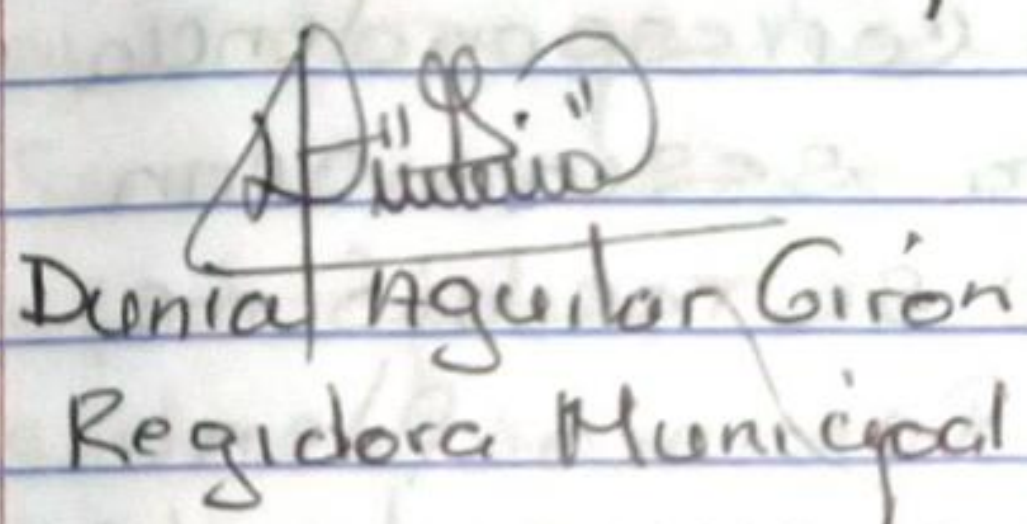 Dunia Aguilar Girón
Regidora Municipal